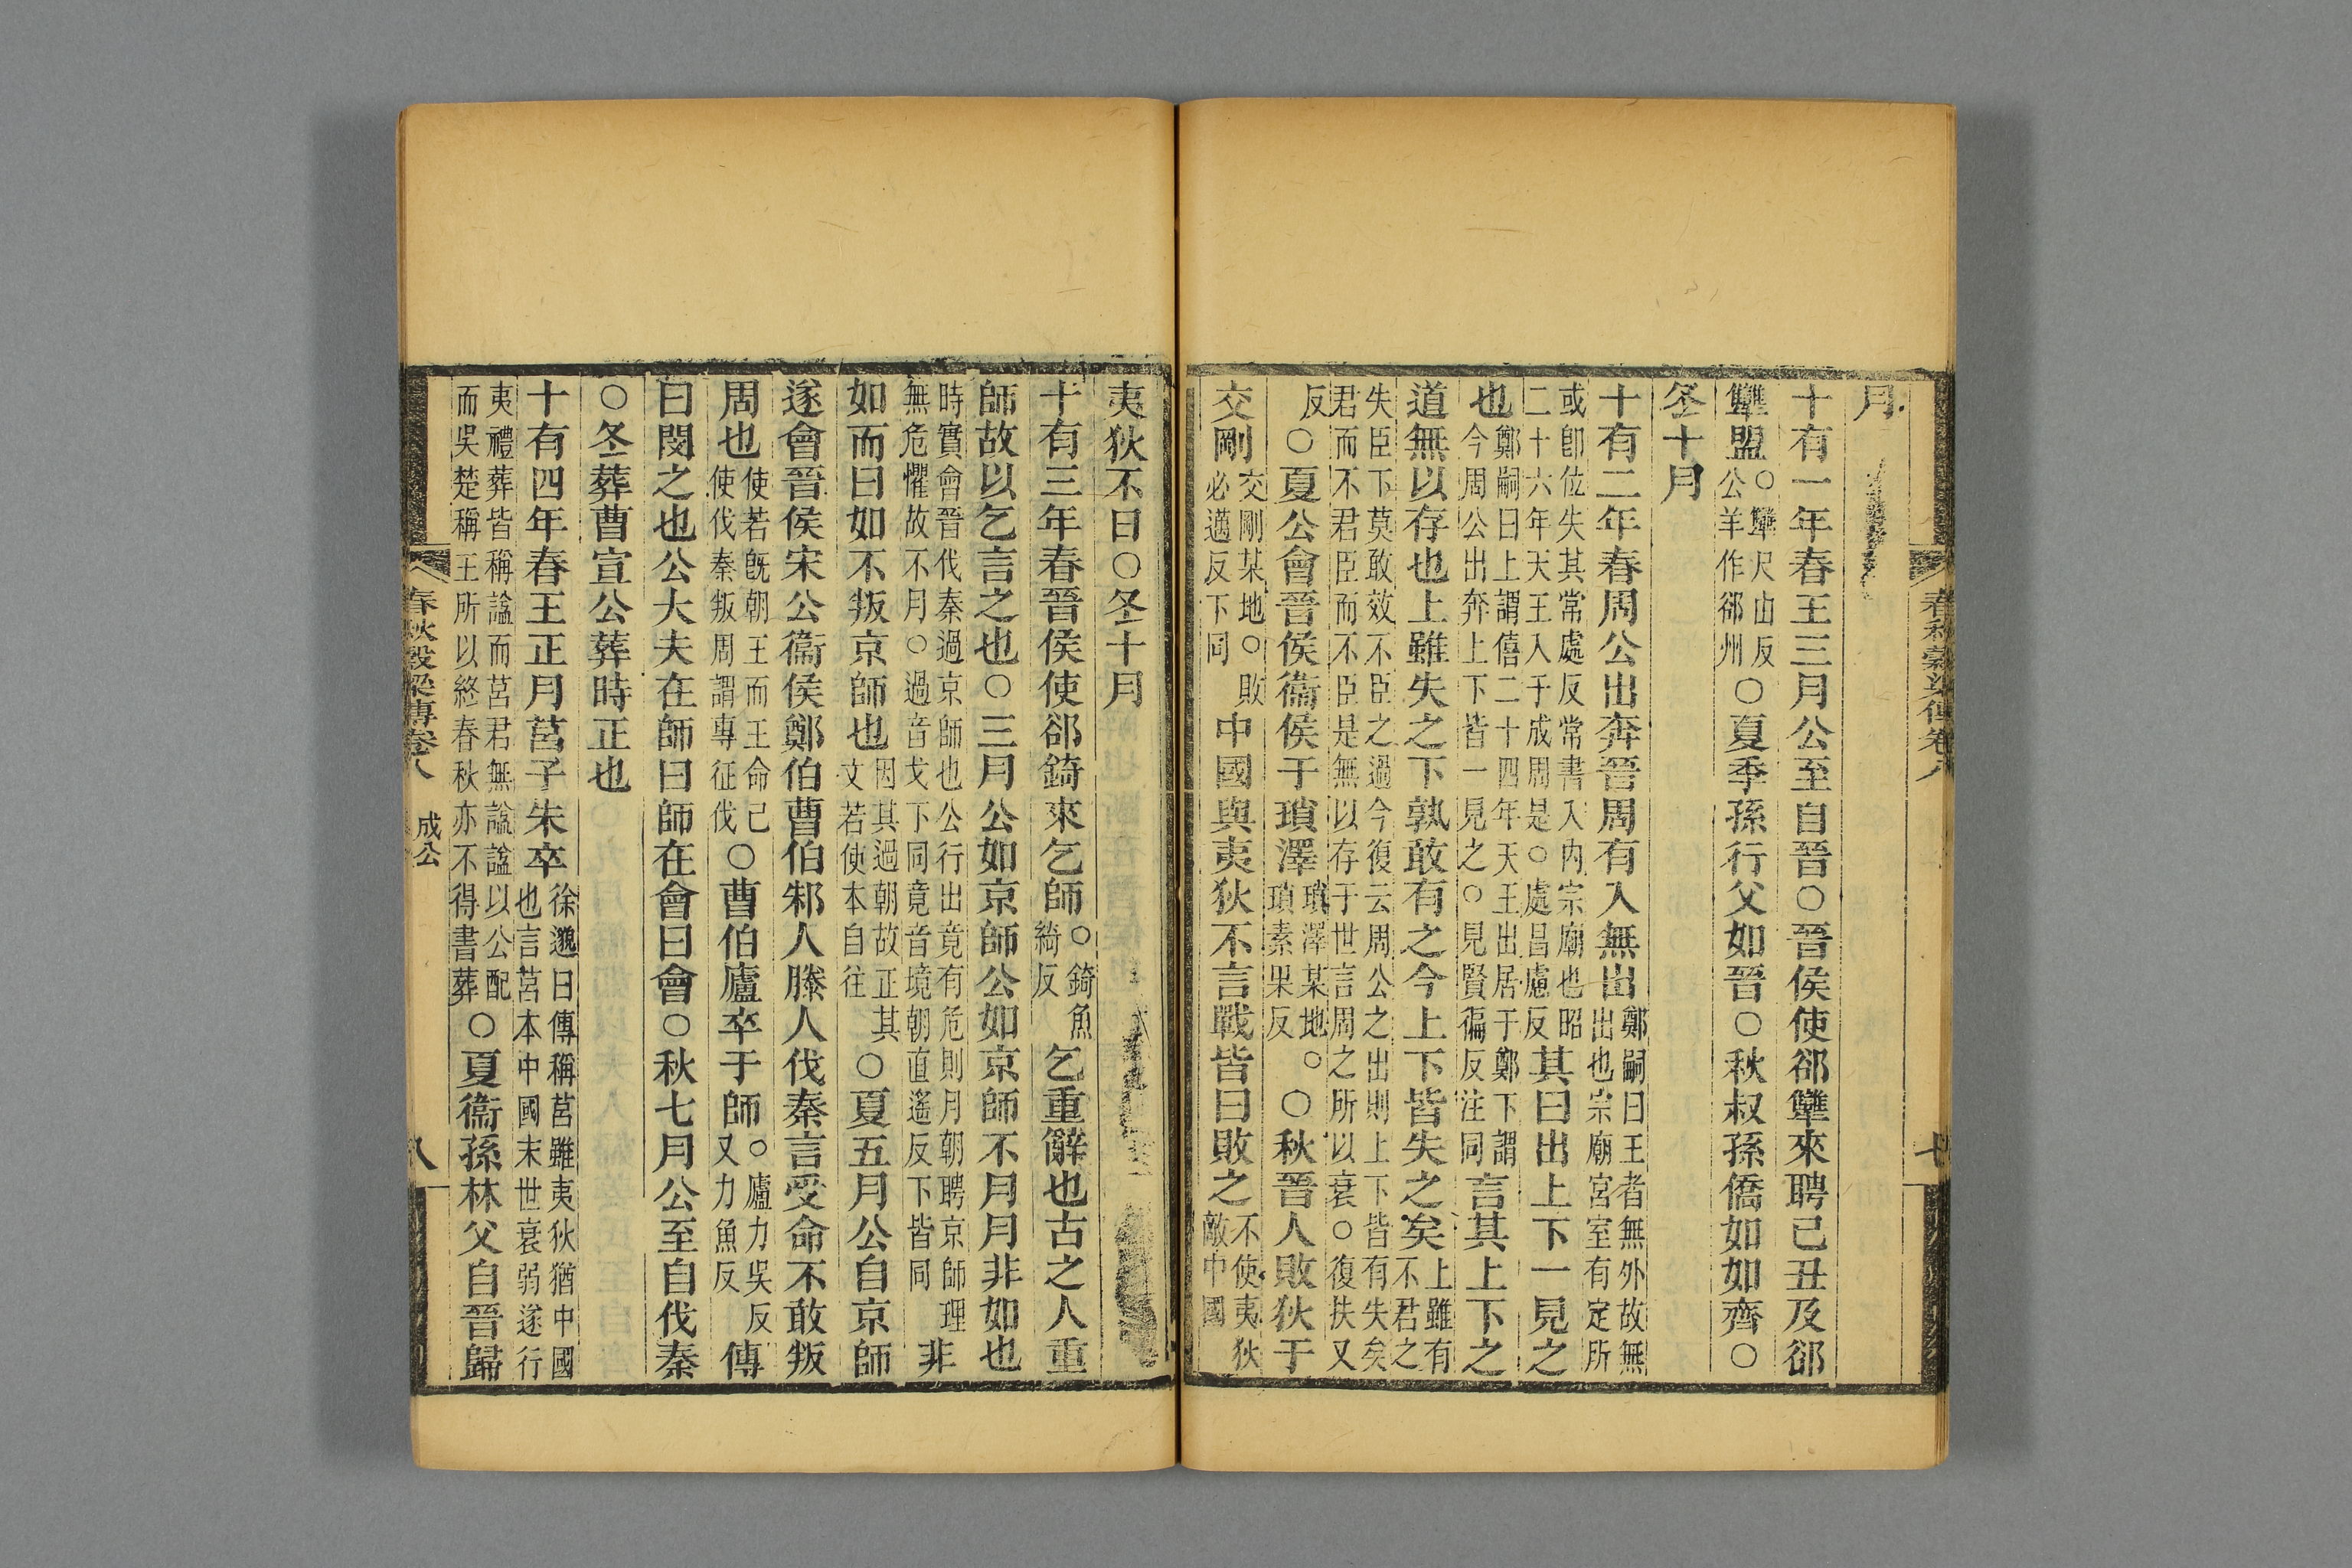 春秋穀梁傳卷八 七
月
十有一年春王三月公至自晉○晉侯使郤犫來聘己丑及郤
犫盟○犫尺由反公羊作郤州○夏季孫行父如晉○秋叔孫僑如如齊○
冬十月
十有二年春周公出奔晉周有入無出鄭嗣曰王者無外故無出也宗廟宮室有定所
或卽位失其常處反常書入內宗廟也昭二十六年天王入于成周是○處昌慮反其曰出上下一見之
也鄭嗣曰上謂僖二十四年天王出居于鄭下謂今周公出奔上下皆一見之○見賢徧反注同言其上下之
道無以存也上雖失之下孰敢有之今上下皆失之矣上雖有不君之
失臣下莫敢效不臣之過今復云周公之出則上下皆有失矣君而不君臣而不臣是無以存于世言周之所以衰○復扶又
反○夏公會晉侯衞侯于瑣澤瑣澤某地○瑣素果反○秋晉人敗狄于
交剛交剛某地○敗必邁反下同中國與夷狄不言戰皆曰敗之不使夷狄敵中國
夷狄不日○冬十月
十有三年春晉侯使郤錡來乞師○錡魚綺反乞重辭也古之人重
師故以乞言之也○三月公如京師公如京師不月月非如也
時實會晉伐秦過京師也公行出竟有危則月朝聘京師理無危懼故不月○過音戈下同竟音境朝直遙反下皆同非
如而曰如不叛京師也因其過朝故正其文若使本自往○夏五月公自京師
遂會晉侯宋公衞侯鄭伯曹伯邾人滕人伐秦言受命不敢叛
周也使若旣朝王而王命己使伐秦叛周謂專征伐○曹伯廬卒于師○廬力吳反又力魚反傳
曰閔之也公大夫在師曰師在會曰會○秋七月公至自伐秦
○冬葬曹宣公葬時正也
十有四年春王正月莒子朱卒徐邈曰傳稱莒雖夷狄猶中國也言莒本中國末世衰弱遂行
夷禮葬皆稱諡而莒君無諡諡以公配而吳楚稱王所以終春秋亦不得書葬○夏衞孫林父自晉歸
春秋穀梁傳卷八 成公 八